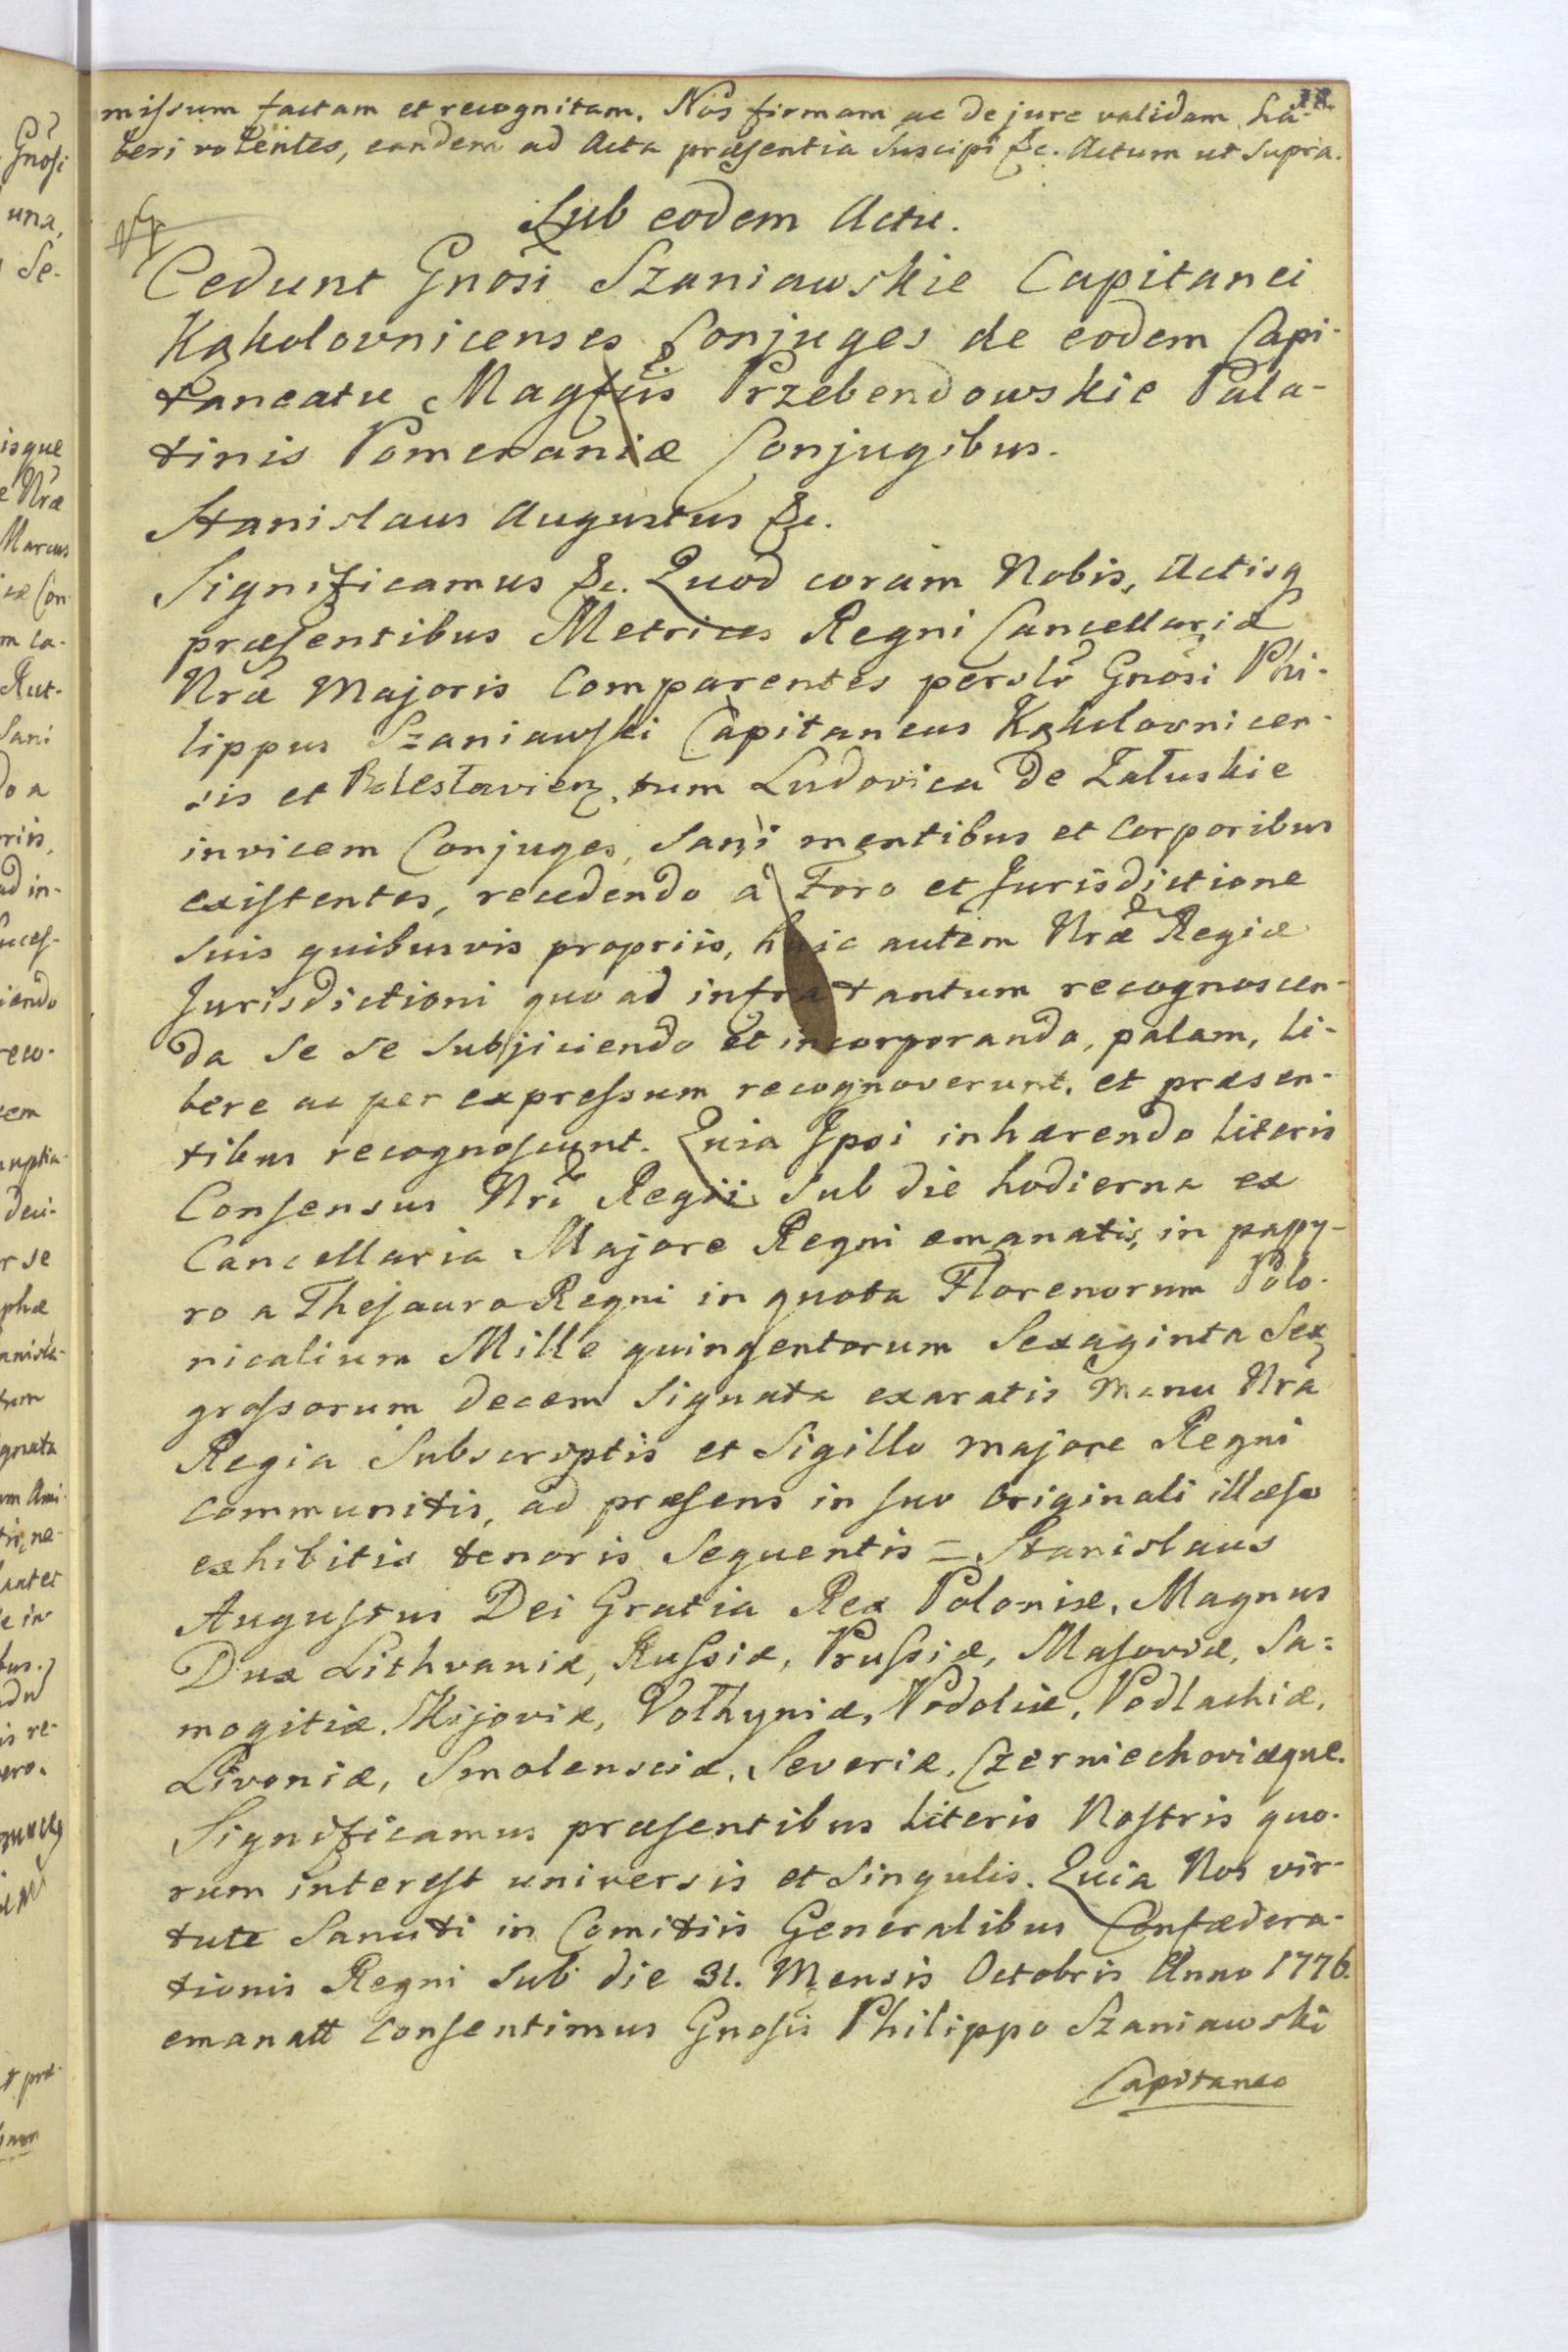 18.
missum factam et recognitam. Nos firmam ac de jure validam ha-
beri volentes, eandem ad Acta præsentia suscipi &c. Actum ut supra.
Sub eodem Actu.
Cedunt Gnosi Szaniawskie Capitanei
Kąkolovnicenses Conjuges de eodem Capi-
taneatu Magfiis Przebendowskie Pala-
tinis Pomeraniæ Conjugibus.
Stanislaus Augustus &c.
Significamus &c. Quod coram Nobis, Actisq
præsentibus Metrices Regni Cancellariæ
Nræ Majoris Comparentes perslr Gnosi Phi-
lippus Szaniawski Capitaneus Kąkolovnicen-
sis et Bolestavien, tum Ludovica de Załuskie
invicem Conjuges, sani mentibus et Corporibus
existentes, recedendo a Foro et Jurisdictione
suis quibusvis propriis, huic autem Nræ Regiæ
Jurisdictioni quo ad infra tantum recognoscen-
da se se subjiciendo et incorporando, palam, li-
bere ac per expressum recognoverunt, et præsen-
tibus recognoscunt. Quia Ipsi inhærendo Literis
Consensus Nri Regii sub die hodierna ex
Cancellaria Majore Regni emanatis, in papy-
ro a Thesauro Regni in quota Florenorum Polo-
nicalium Mille quingentorum Sexaginta Sex
grossorum decem signata exaratis Manu Nra
Regia Subscriptis et Sigillo majore Regni
communitis, ad præsens in suo Originali illæso
exhibitis tenoris sequentis = Stanislaus
Augustus Dei Gratia Rex Poloniæ, Magnus
Dux Lithvaniæ, Russiæ, Prussiæ, Masoviæ, Sa=
mogitiæ, Kijoviæ, Volhyniæ, Podoliæ, Podlachiæ,
Livoniæ, Smolensciæ, Severiæ, Czerniechoviæque.
Significamus præsentibus Literis Nostris quo-
rum interest universis et singulis. Quia Nos vir-
tute Sanciti in Comitiis Generalibus Confædera-
tionis Regni sub die 31. Mensis Octobris Anno 1776.
emanatt Consentimus Gnosis Philippo Szaniawski
Capitaneo